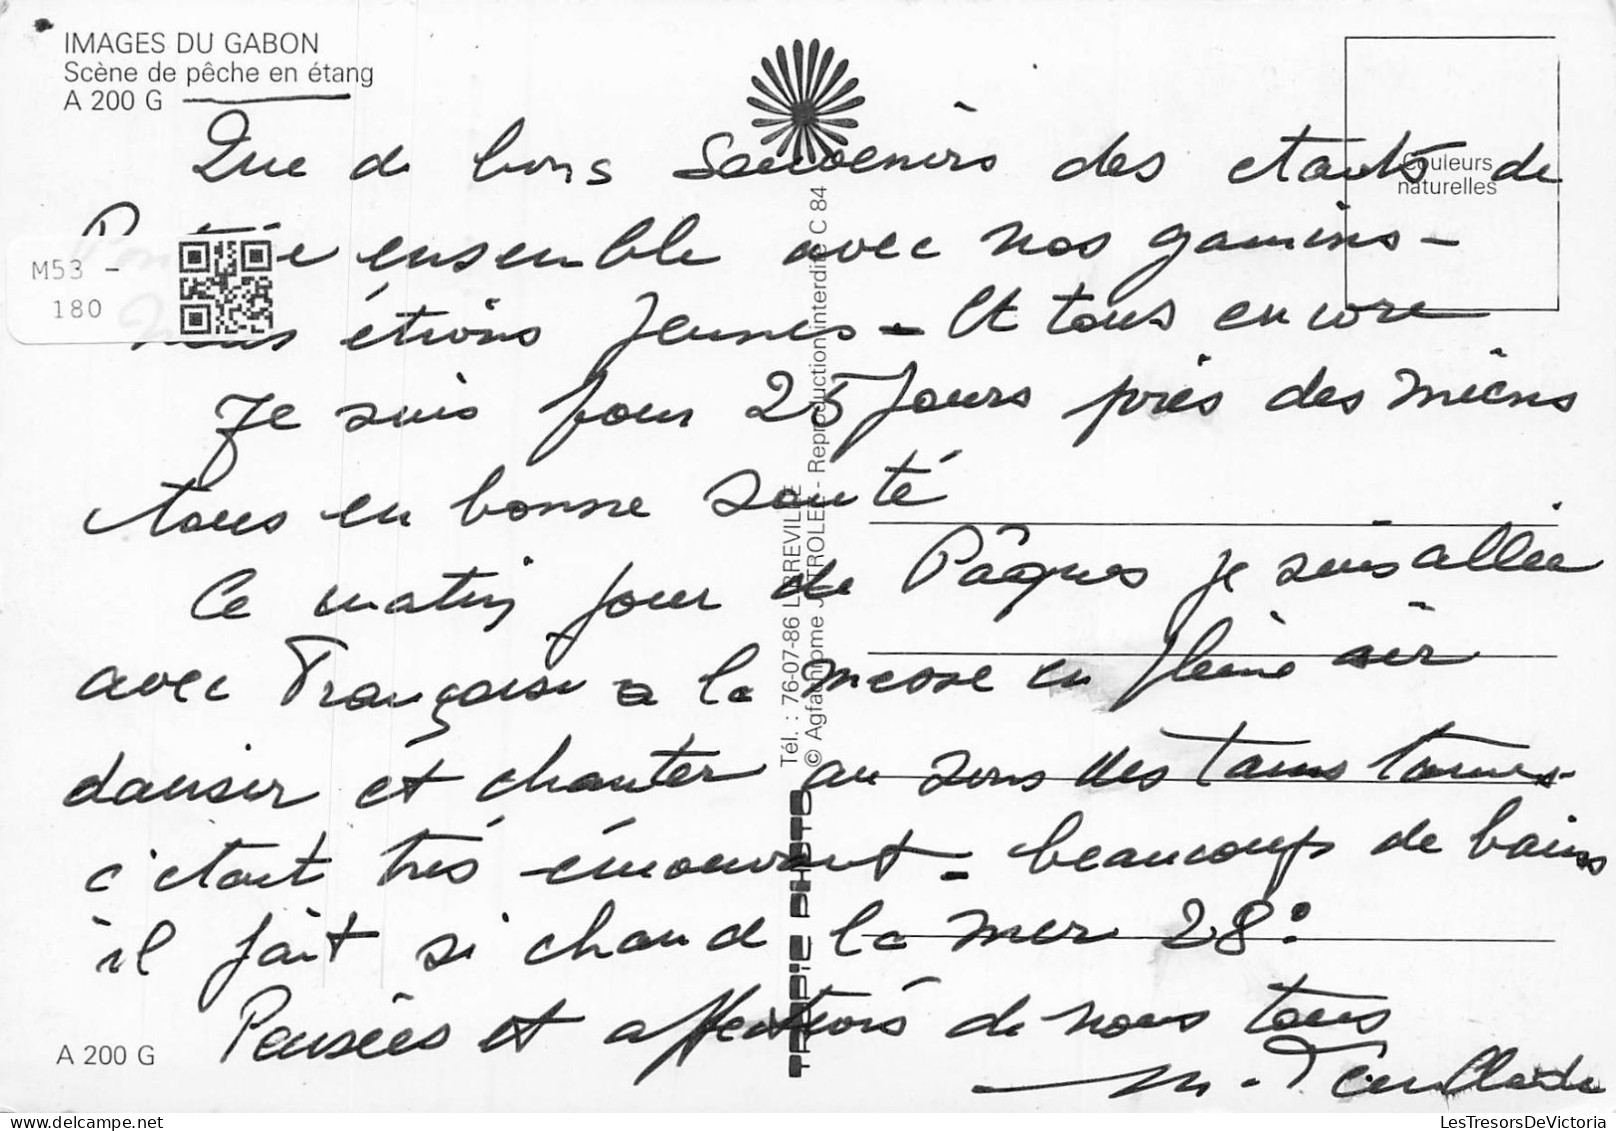 IMAGES DU GABON
Scène de pêche en étang
A 200 G
Couleurs
naturelles
Que de bons Souvenirs des etants de
ensemble avec nos gamins -
M53 -
180
nous étions Jeunes - Et tous encore
Je suis pour 25 Jours près des miens
tous en bonne santé
Ce matin jour de Pâques je suis allée
avec Françoise a la messe en pleine air
danser et chanter au sons des tams tams -
c'etait très émouvant - beaucoup de bains
il fait si chaud la mer 28°
Pensées et affections de nous tous
M.
A 200 G
TRAPPIE PHOTO
Tél. : 76-07-86 LIBREVILLE
© Agfachrome J. TROLEZ - Reproduction interdite C 84
LesTresorsDeVictoria.com